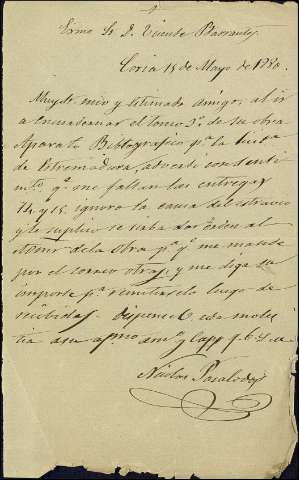 Exmo Sr D. Vicente Barrantes
Coria 15 de Mayo de 1880.
Muy Sr mio y estimado amigo; al ir
a encuadernar el tomo 3º de su obra
Aparato Bibliografico pª la histª
de Estremadura, adverti con senti
mtº qº me faltan las entregas
14 y 15. ignoro la causa del estravio
y le suplico se sirba dar orden al
de la obra pª qº me mande
por el correo otras, y me diga su
importe pª remitirselo luego de
recibidas. dispense V. esta moles
tia a su apmo amº y Capp q. b. s. m.